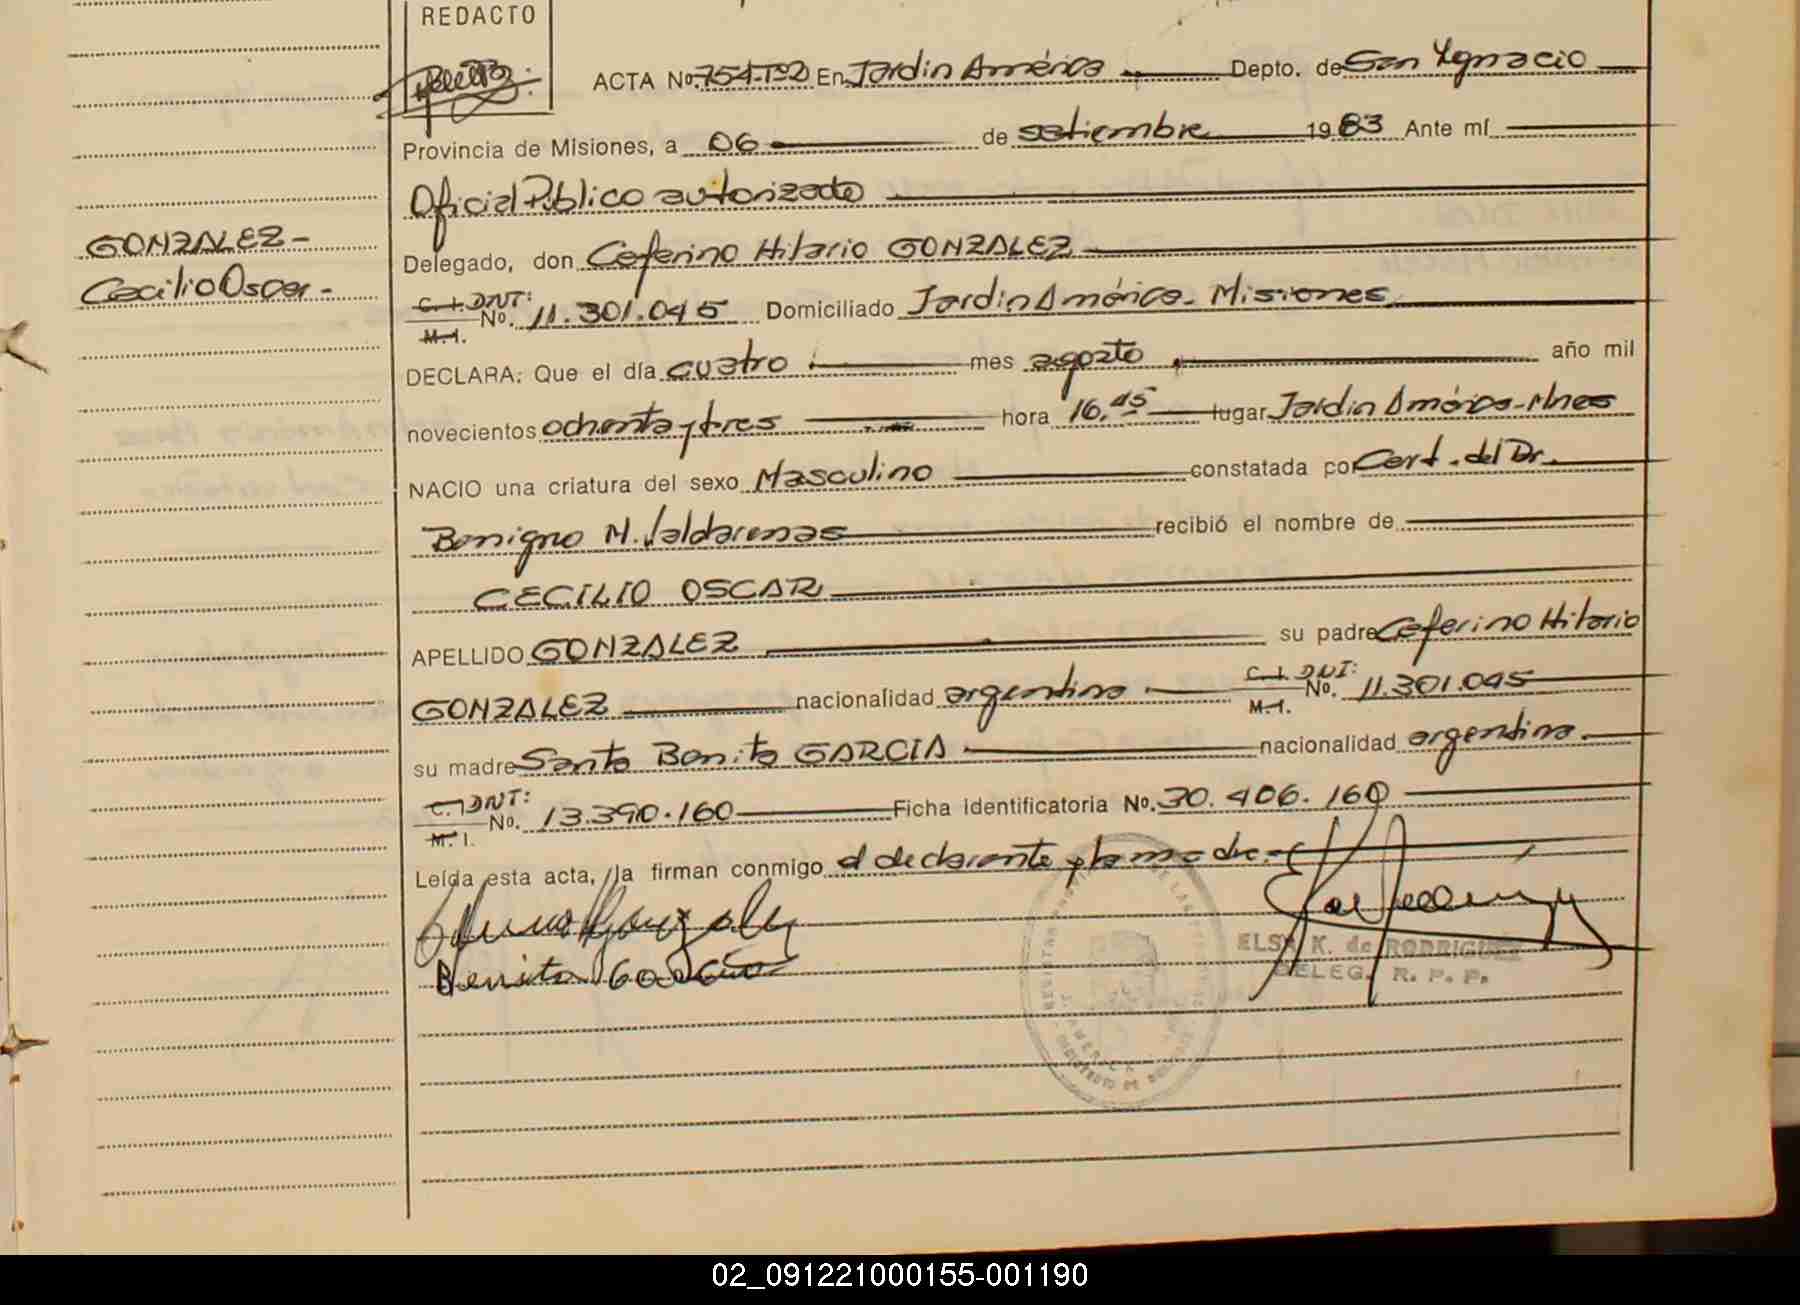 REDACTO
ACTA No. 754-Tº2 En Jardin América Depto. de San Ygnacio
Provincia de Misiones, a 06 de setiembre 1983 Ante mí
Oficial Público autorizado
GONZALEZ-
Delegado, don Ceferino Hilario GONZALEZ
Cecilio Oscar-
C.I. DNI: M.I. No. 11.301.045 Domiciliado Jardin América - Misiones
DECLARA: Que el día cuatro mes agosto año mil
novecientos ochenta y tres hora 16,45 lugar Jardin América-Mnes
NACIO una criatura del sexo Masculino constatada por Cert. del Dr.
Benigno M. Valdarenas recibió el nombre de
CECILIO OSCAR
APELLIDO GONZALEZ su padre Ceferino Hilario
GONZALEZ nacionalidad argentina C.I. DNI: M.I. No. 11.301.045
su madre Santa Benita GARCIA nacionalidad argentina.
C.I. DNI: M.I. No. 13.390.160 Ficha identificatoria No. 30.406.160
Leída esta acta, la firman conmigo el declarante y la madre.-
Gonzalez
Benita
ELSA K. de RODRIGUEZ
DELEG. R. P. P.
02_091221000155-001190